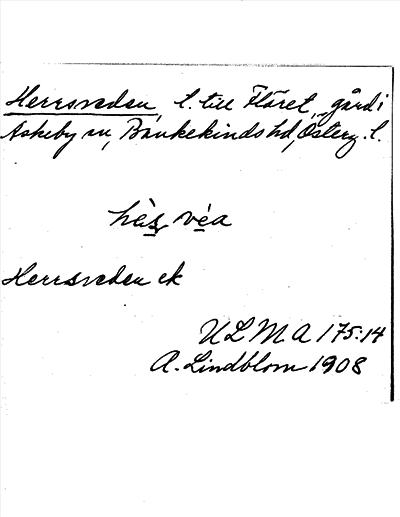 Herrsvedan, l. till Fläret, gård i
Askeby sn, Bankekinds hd, Österg. l.
hès véa
Herrsvedan ek
ULMA 175:14
A. Lindblom 1908